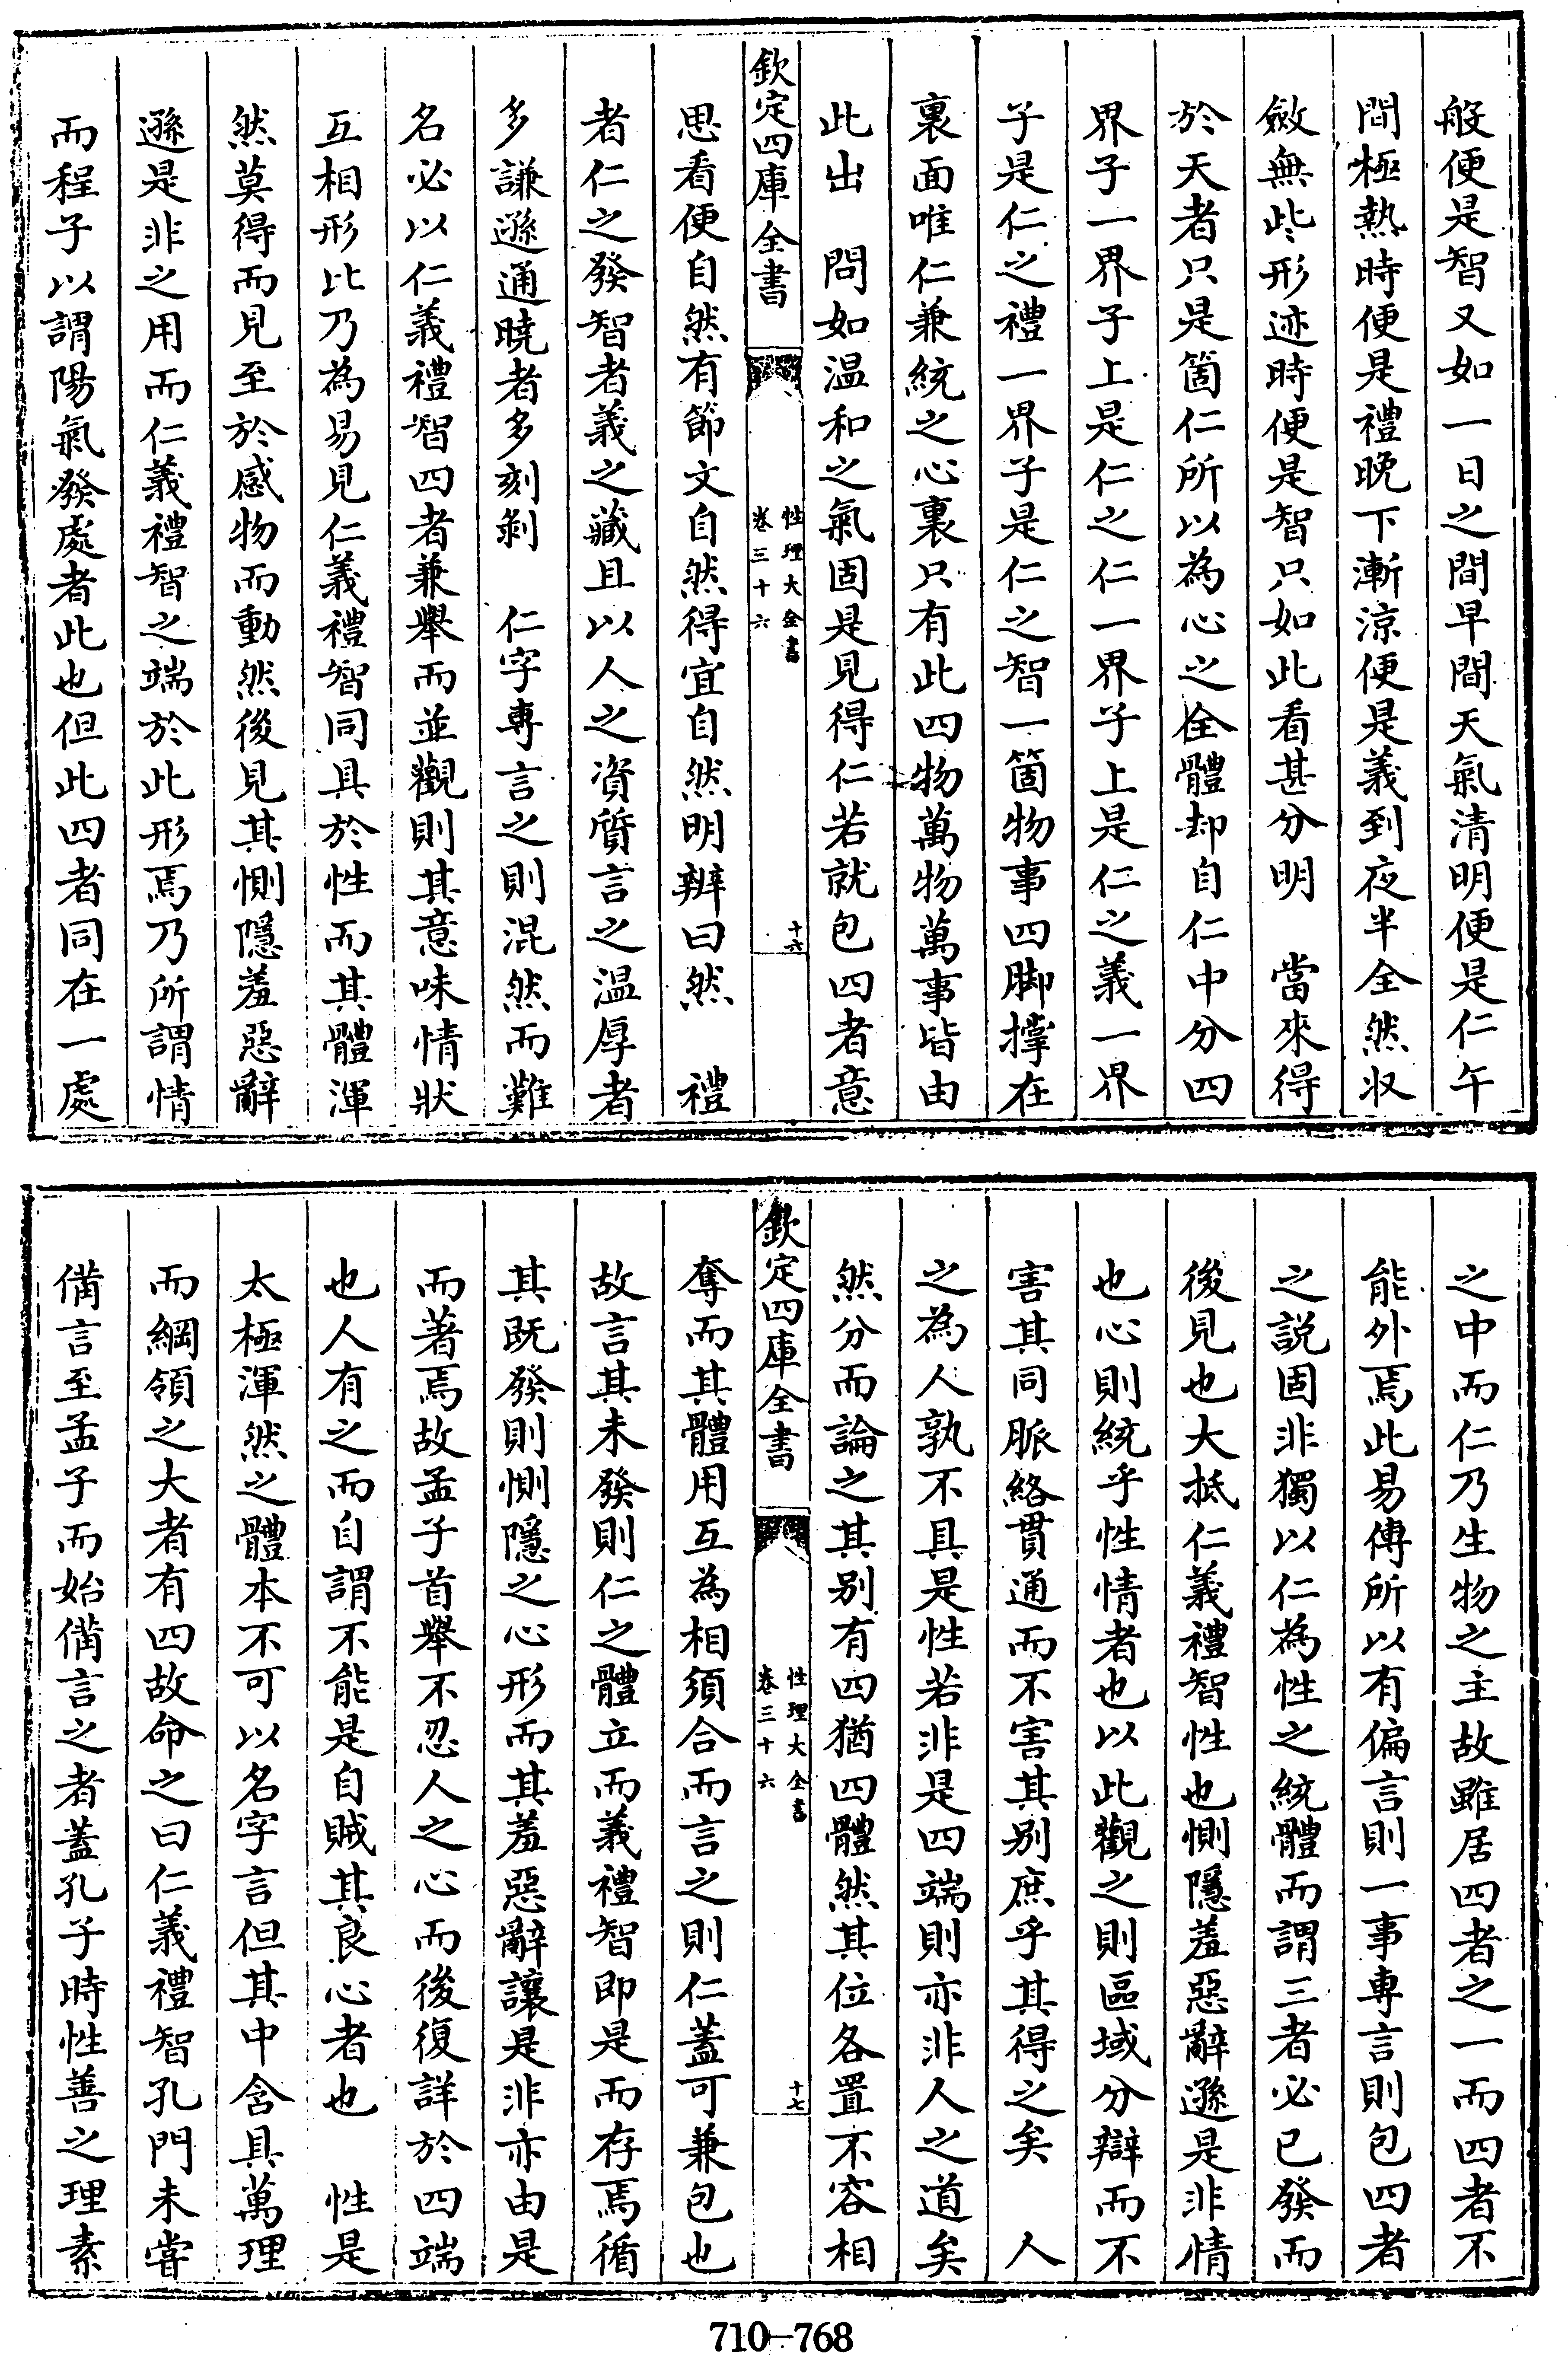 般便是智又如一日之間早間天氣清明便是仁午
間極熱時便是禮晚下漸涼便是義到夜半全然收
斂無些形迹時便是智只如此看甚分明　當來得
於天者只是箇仁所以為心之全體却自仁中分四
界子一界子上是仁之仁一界子上是仁之義一界
子是仁之禮一界子是仁之智一箇物事四脚撑在
裏面唯仁兼統之心裏只有此四物萬物萬事皆由
此出　問如温和之氣固是見得仁若就包四者意
欽定四庫全書
性理大全書
卷三十六
十六
思看便自然有節文自然得宜自然明辨曰然　禮
者仁之發智者義之藏且以人之資質言之温厚者
多謙遜通曉者多刻剝　仁字專言之則混然而難
名必以仁義禮智四者兼舉而並觀則其意味情狀
互相形比乃為易見仁義禮智同具於性而其體渾
然莫得而見至於感物而動然後見其惻隱羞惡辭
遜是非之用而仁義禮智之端於此形焉乃所謂情
而程子以謂陽氣發處者此也但此四者同在一處
之中而仁乃生物之主故雖居四者之一而四者不
能外焉此易傳所以有偏言則一事專言則包四者
之說固非獨以仁為性之統體而謂三者必已發而
後見也大抵仁義禮智性也惻隱羞惡辭遜是非情
也心則統乎性情者也以此觀之則區域分辯而不
害其同脈絡貫通而不害其別庶乎其得之矣　人
之為人孰不具是性若非是四端則亦非人之道矣
然分而論之其別有四猶四體然其位各置不容相
欽定四庫全書
性理大全書
卷三十六
十七
奪而其體用互為相須合而言之則仁蓋可兼包也
故言其未發則仁之體立而義禮智即是而存焉循
其既發則惻隱之心形而其羞惡辭讓是非亦由是
而著焉故孟子首舉不忍人之心而後復詳於四端
也人有之而自謂不能是自賊其良心者也　性是
太極渾然之體本不可以名字言但其中含具萬理
而綱領之大者有四故命之曰仁義禮智孔門未嘗
備言至孟子而始備言之者蓋孔子時性善之理素
710-768